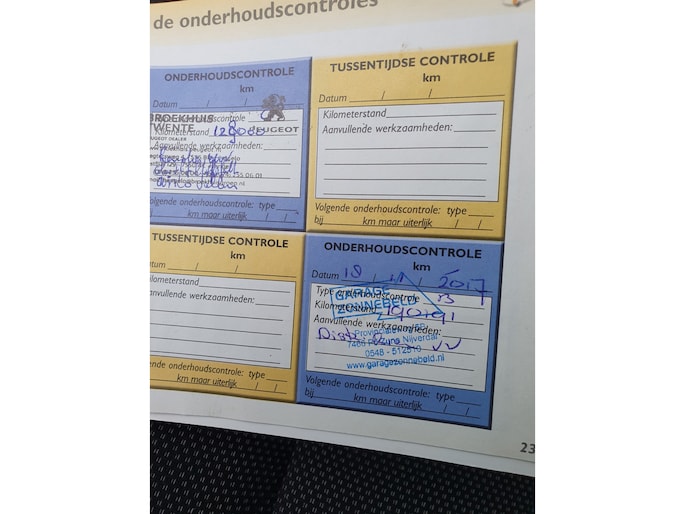 de onderhoudscontroles
ONDERHOUDSCONTROLE
km
Datum / /
Type onderhoudscontrole
Kilometerstand 128000
Aanvullende werkzaamheden:
BROEKHUIS
TWENTE
PEUGEOT DEALER
PEUGEOT
Volgende onderhoudscontrole: type
bij km maar uiterlijk / /
TUSSENTIJDSE CONTROLE
km
Datum / /
Kilometerstand
Aanvullende werkzaamheden:
Volgende onderhoudscontrole: type
bij km maar uiterlijk / /
TUSSENTIJDSE CONTROLE
km
tum / /
ilometerstand
anvullende werkzaamheden:
Volgende onderhoudscontrole: type
km maar uiterlijk / /
ONDERHOUDSCONTROLE
km
Datum 18 / / 2017
Type onderhoudscontrole B
Kilometerstand 190191
Aanvullende werkzaamheden:
GARAGE
ZONNEBELD
Nijverdal
0548 - 512810
www.garagezonnebeld.nl
Volgende onderhoudscontrole: type
bij km maar uiterlijk / /
23